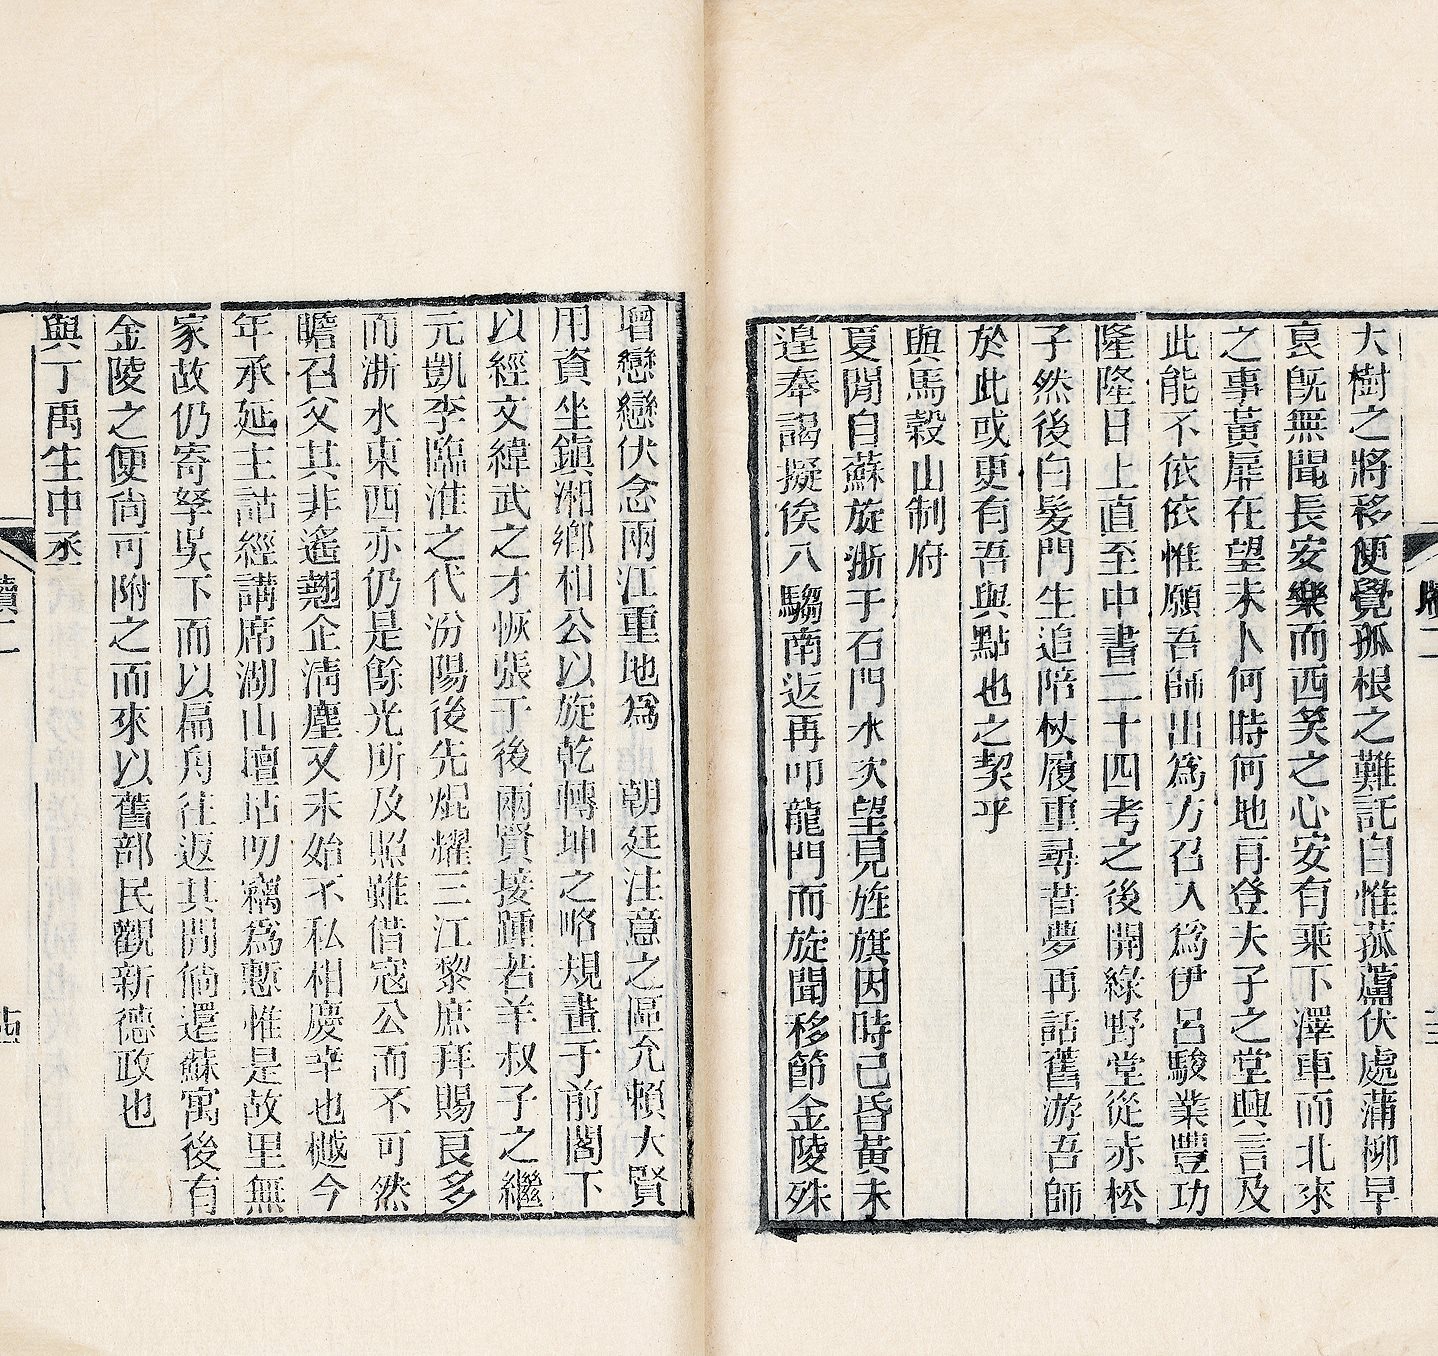 大樹之將移便覺孤根之難託自惟菰蘆伏處蒲柳早
衰旣無聞長安樂而西笑之心安有乘下澤車而北來
之事黃扉在望未卜何時何地再登夫子之堂興言及
此能不依依惟願吾師出爲方召入爲伊呂駿業豐功
隆隆日上直至中書二十四考之後開綠野堂從赤松
子然後白髮門生追陪杖履重尋昔夢再話舊游吾師
於此或更有吾與點也之契乎
與馬穀山制府
夏閒自蘇旋浙于石門水次望見旌旗因時已昏黃未
遑奉謁擬俟八騶南返再叩龍門而旋聞移節金陵殊
增戀戀伏念兩江重地爲 朝廷注意之區允賴大賢
用資坐鎭湘鄉相公以旋乾轉坤之略規畫于前閣下
以經文緯武之才恢張于後兩賢接踵若羊叔子之繼
元凱李臨淮之代汾陽後先焜耀三江黎庶拜賜良多
而浙水東西亦仍是餘光所及照雖借寇公而不可然
瞻召父其非遙翹企淸塵又未始不私相慶幸也樾今
年承延主詁經講席湖山壇坫叨竊爲慙惟是故里無
家故仍寄孥吳下而以扁舟往返其閒倘還蘇寓後有
金陵之便尙可附之而來以舊部民觀新德政也
與丁禹生中丞
續二